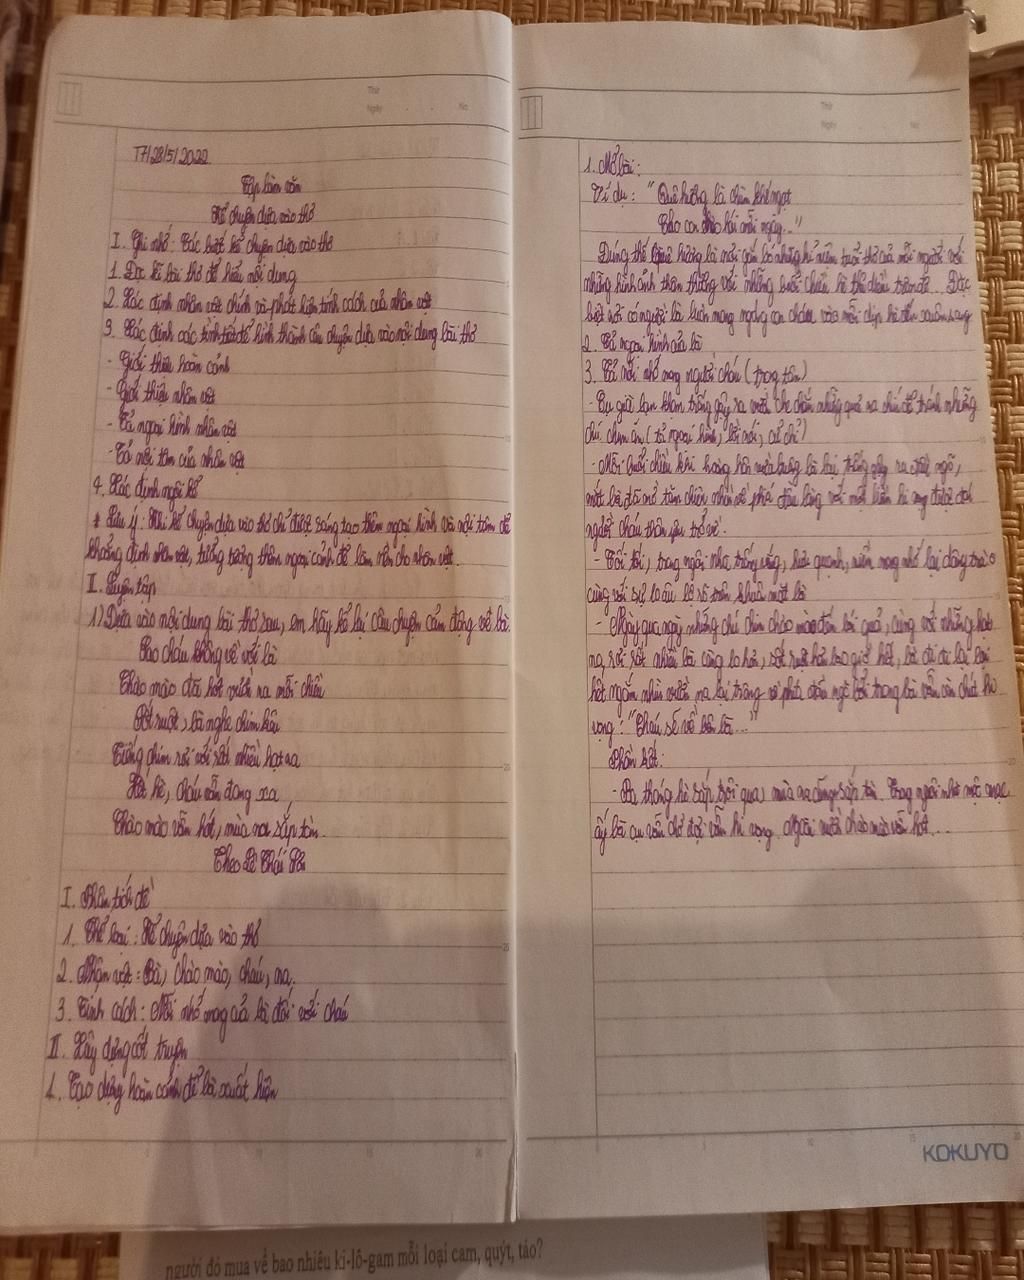 Thứ
Ngày . . No
T7/28/5/2022
Tập làm văn
Kể chuyện dựa vào thơ
I. Ghi nhớ: Các bước kể chuyện dựa vào thơ
1. Đọc kĩ bài thơ để hiểu nội dung
2. Xác định nhân vật chính và phát hiện tính cách của nhân vật
3. Xác định các tình tiết để hình thành câu chuyện dựa vào nội dung bài thơ
- Giới thiệu hoàn cảnh
- Giới thiệu nhân vật
- Tả ngoại hình nhân vật
- Tả nội tâm của nhân vật
4. Xác định ngôi kể
* Lưu ý: Khi kể chuyện dựa vào thơ chỉ được sáng tạo thêm ngoại hình và nội tâm để
khẳng định nhân vật, tưởng tượng thêm ngoại cảnh để làm nền cho nhân vật.
II. Luyện tập
1) Dựa vào nội dung bài thơ sau, em hãy kể lại câu chuyện cảm động về bà.
Sao cháu không về với bà
Chào mào đã hót vườn na mỗi chiều
Sốt ruột, bà nghe chim kêu
Tiếng chim rơi với rất nhiều hạt na
Hết hè, cháu vẫn đang xa
Chào mào vẫn hót, mùa na sắp tàn.
Theo Lê Thái Sơn
I. Phân tích đề
1. Thể loại: Kể chuyện dựa vào thơ
2. Nhân vật: Bà, chào mào, cháu, na.
3. Tính cách: Nỗi nhớ mong của bà đối với cháu
II. Xây dựng cốt truyện
1. Tạo dựng hoàn cảnh để bà xuất hiện
Thứ
Ngày . . No
1. Mở bài:
Ví dụ: "Quê hương là chùm khế ngọt
Cho con trèo hái mỗi ngày..."
Đúng thế quê hương là nơi gắn bó những kỉ niệm tuổi thơ của mỗi người với
những hình ảnh thân thương với những buổi chiều hè thả diều trên đê... Đặc
biệt nơi có người bà luôn mong ngóng con cháu vào mỗi dịp hè đến xuân sang
2. Tả ngoại hình của bà
3. Tả nỗi nhớ mong người cháu (trọng tâm)
- Cụ già lạm khom chống gậy ra vườn che chắn những quả na chín để tránh những
chú chim ăn (tả ngoại hình, lời nói, cử chỉ)
- Mỗi buổi chiều khi hoàng hôn vừa buông bà lại chống gậy ra ngõ,
mắt bà đã mờ tầm nhìn về phía đầu làng với một niềm hi vọng được đợi
người cháu thân yêu trở về.
- Tối tối, trong ngôi nhà trống vắng, hiu quạnh, niềm mong nhớ lại dâng trào
cùng với sự lo âu lộ rõ trên khuôn mặt bà
- Ngày qua ngày những chú chim chào mào đến bới quả, cùng với những hạt
na rơi rất nhiều bà càng lo hơn, sốt ruột hơn bao giờ hết, bà đi đi lại lại
hết ngắm nhìn vườn na lại trông về phía đầu ngõ bởi trong bà vẫn còn chút hi
vọng: "Cháu sẽ về bên bà..."
Phần kết:
- Ba tháng hè sắp trôi qua, mùa na cũng sắp tàn. Trong ngôi nhà mộc mạc
ấy bà cụ vẫn chờ đợi vẫn hi vọng. Ngoài vườn chào mào vẫn hót...
KOKUYO
người đó mua về bao nhiêu ki-lô-gam mỗi loại cam, quýt, táo?